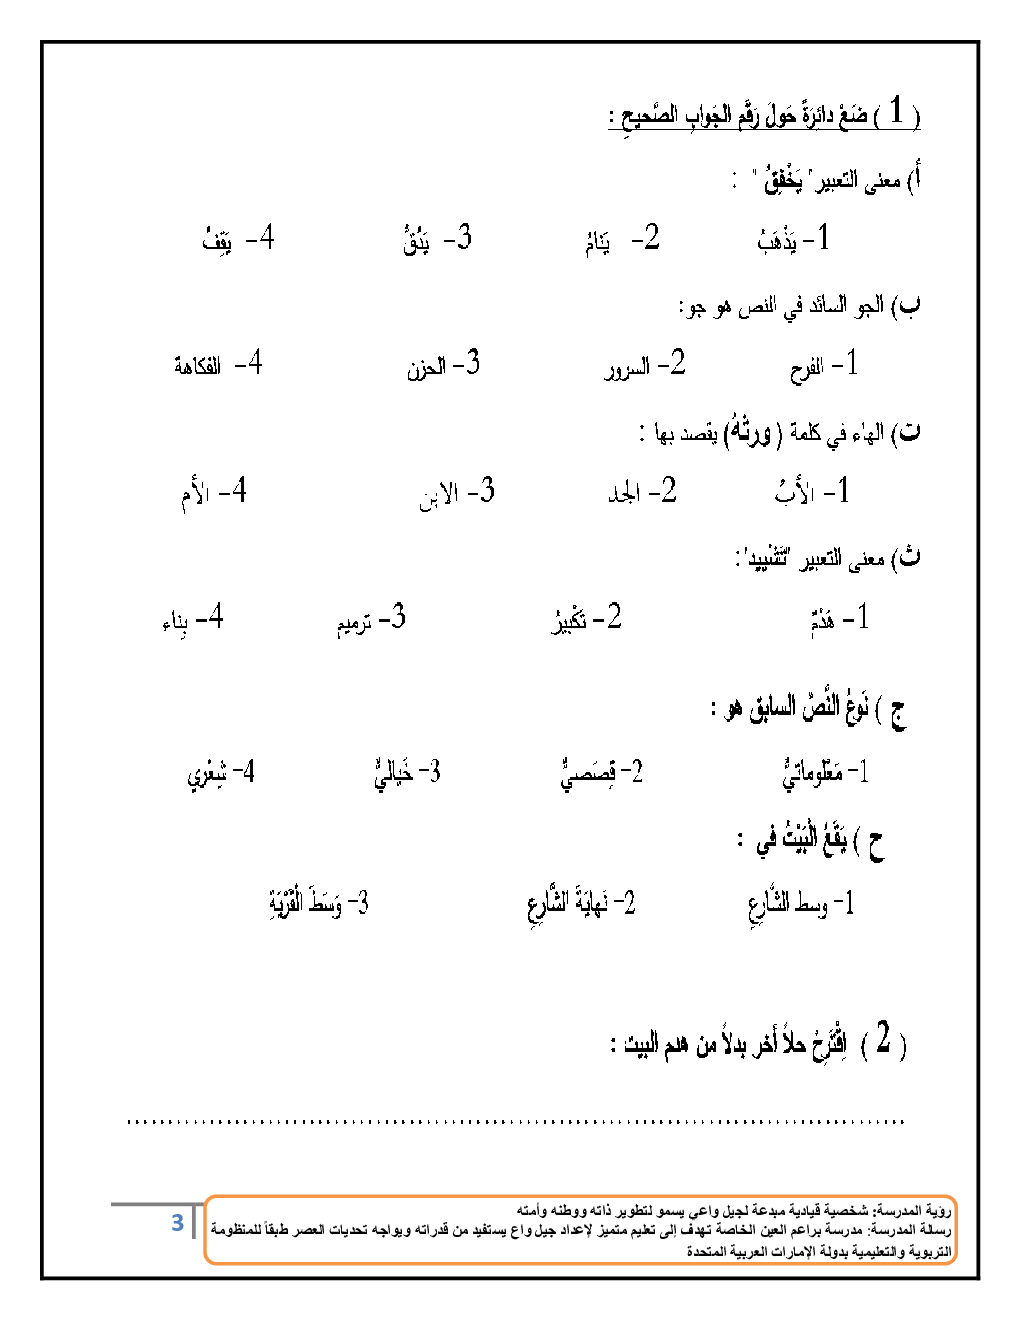 ( 1 ) ضَعْ دائِرَةً حَولَ رَقَّمِ الجَوابِ الصَّحيحِ :
أ) معنى التعبير" يَخْفِقُ " :
1- يَذْهَبُ 2- يَنامُ 3- يَدُقُّ 4- يَقِفُ
ب) الجو السائد في النص هو جو:
1- الفرح 2- السرور 3- الحزن 4- الفكاهة
ت) الهاء في كلمة ( ورثهُ) يقصد بها :
1- الأبُ 2- الجد 3- الابن 4- الأم
ث) معنى التعبير "تَشْييد":
1- هَدْمٌ 2- تَكْبيرُ 3- ترميم 4- بِناء
ج ) نَوعُ النَّصُ السابق هو :
1- مَعْلوماتيُّ 2- قِصَصيُّ 3- خَياليُّ 4- شِعْري
ح ) يَقَعُ الْبَيْتُ في :
1- وسط الشَّارِعِ 2- نَهايَةَ الشَّارِعِ 3- وَسَطَ الْقَرْيَةِ
( 2 ) اِقْتَرِحُ حلاً أخر بدلاً من هدم البيت :
................................................................................................
رؤية المدرسة: شخصية قيادية مبدعة لجيل واعي يسمو لتطوير ذاته ووطنه وأمته
رسالة المدرسة: مدرسة براعم العين الخاصة تهدف إلى تعليم متميز لإعداد جيل واع يستفيد من قدراته ويواجه تحديات العصر طبقاً للمنظومة
التربوية والتعليمية بدولة الإمارات العربية المتحدة
3